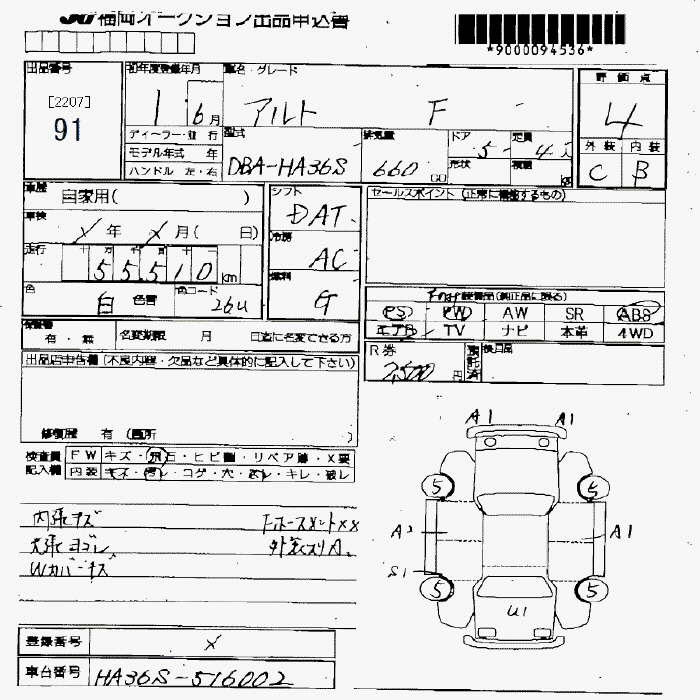 福岡オークション出品申込書
*9000094536*
出品番号
[2207]
91
初年度登録年月
1 6月
車名・グレード
アルト F
評価点
4
ディーラー・並行
モデル年式 年
ハンドル 左・右
型式
DBA-HA36S
排気量
660
CC
ドア
5
形状
定員
4
積載
kg
外装 内装
C B
車歴
自家用( )
シフト
DAT
セールスポイント (正常に機能するもの)
車検
年 月( 日)
冷房
AC
走行
十 万 千 百 十 一
5 5 5 1 0 km
燃料
G
色
白 色替
色コード
26U
装備品(純正品に限る)
PS PW AW SR ABS
エアB TV ナビ 本革 4WD
有・無
名変期限 月 日迄に名変できる方
R券
7500 円
預託済
後日品
出品店申告欄 (不良内容・欠品など具体的に記入して下さい)
修復歴 有 (箇所 )
検査員記入欄
FW キズ・飛石・ヒビ割・リペア跡・X要
内装 キズ・汚レ・コゲ・穴・スレ・キレ・破レ
内張キズ
天張ヨゴレ
Wカバーキズ
外装スリA
A1 A1
5 5
A1
S1
5 5
U1
登録番号 X
車台番号 HA36S-516002